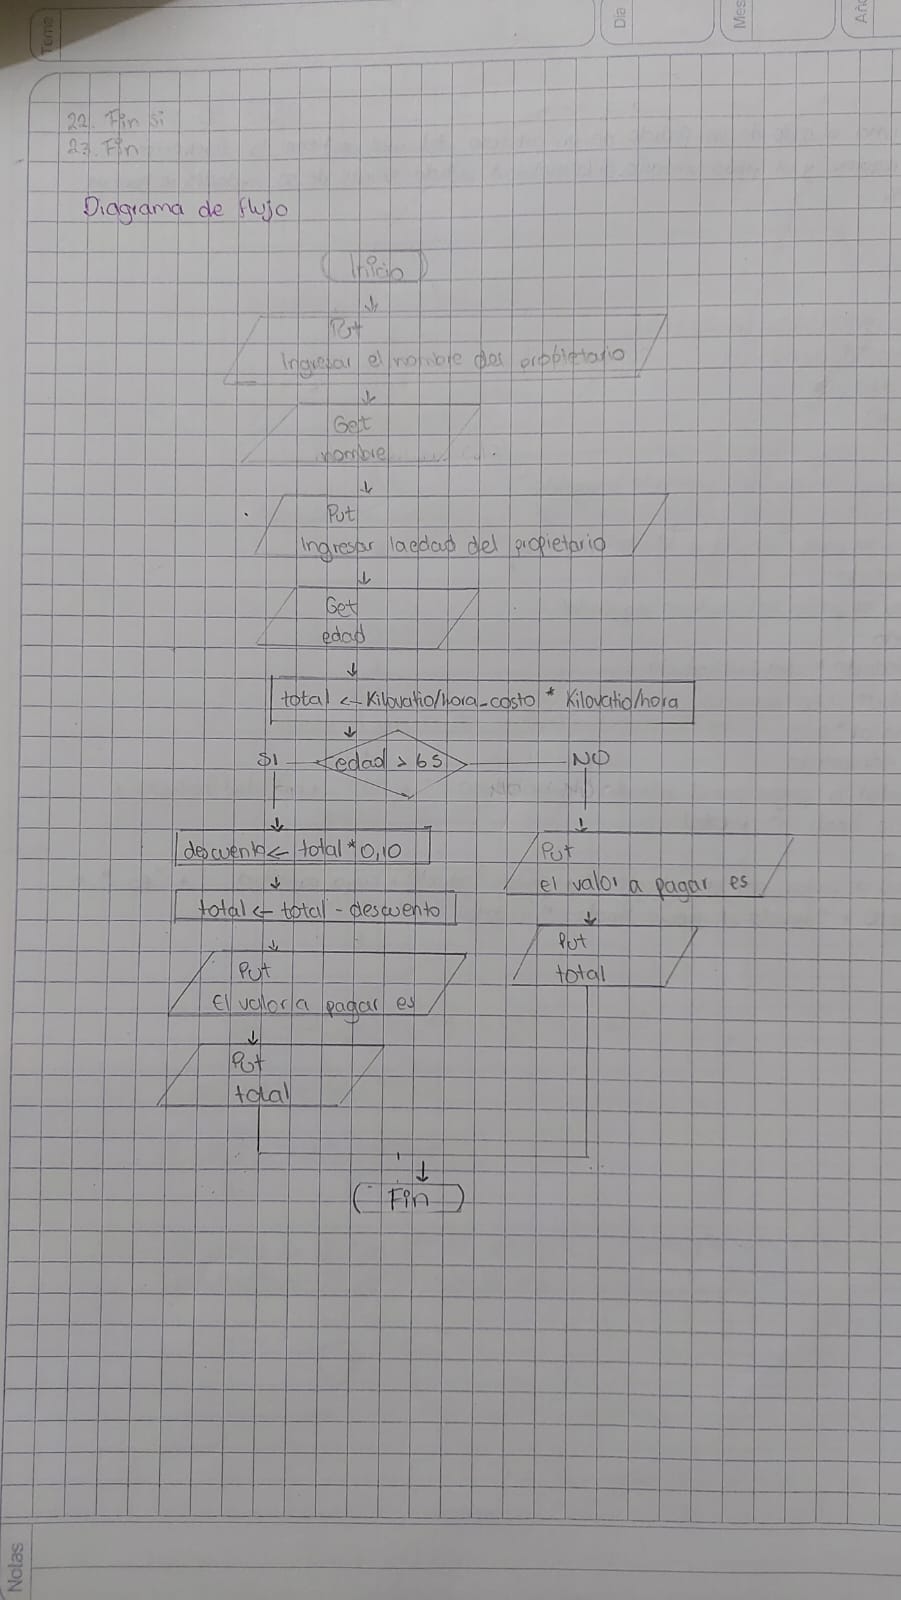 Tema
Día
Mes
Año
22. Fin si
23. Fin
Diagrama de flujo
Inicio
Put
Ingresar el nombre del propietario
Get
nombre
Put
Ingresar la edad del propietario
Get
edad
total ← Kilovatio/hora_costo * Kilovatio/hora
SI
edad > 65
NO
descuento ← total * 0,10
total ← total - descuento
Put
El valor a pagar es
Put
total
Put
el valor a pagar es
Put
total
Fin
Notas